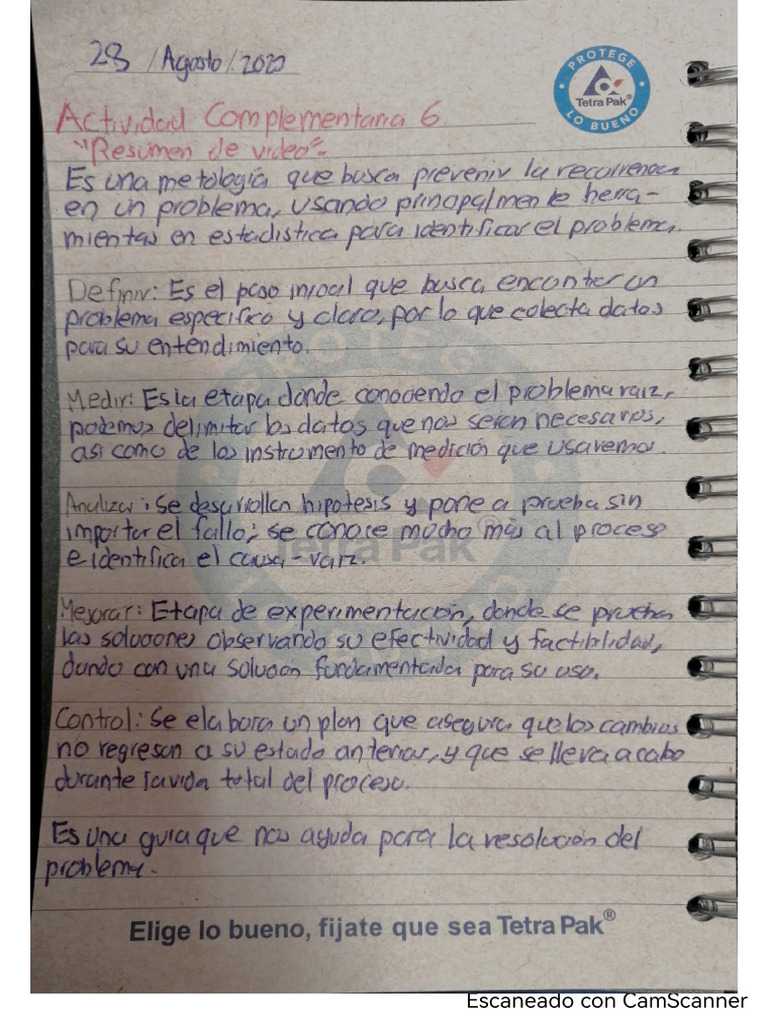 28 / Agosto / 2022
PROTEGE
Tetra Pak®
LO BUENO
Actividad Complementaria 6
"Resumen de video".
Es una metología que busca prevenir la recurrencia
en un problema, usando principalmente herra-
mientas en estadística para identificar el problema.
Definir: Es el paso inicial que busca encontrar un
problema específico y claro, por lo que colecta datos
para su entendimiento.
Medir: Es la etapa donde conociendo el problema raíz,
podemos delimitar los datos que nos serán necesarios,
así como de los instrumento de medición que usaremos.
Analizar: Se desarrollan hipotesis y pone a prueba sin
importar el fallo; se conoce mucho más al proceso
e identifica el causa-raíz.
Tetra Pak®
Mejorar: Etapa de experimentación, donde se prueban
las soluciones observando su efectividad y factibilidad,
dando con una solución fundamentada para su uso.
Control: Se elabora un plan que asegura que los cambios
no regresan a su estado anterior, y que se lleva a cabo
durante la vida total del proceso.
Es una guía que nos ayuda para la resolución del
problema.
Elige lo bueno, fijate que sea Tetra Pak®
Escaneado con CamScanner